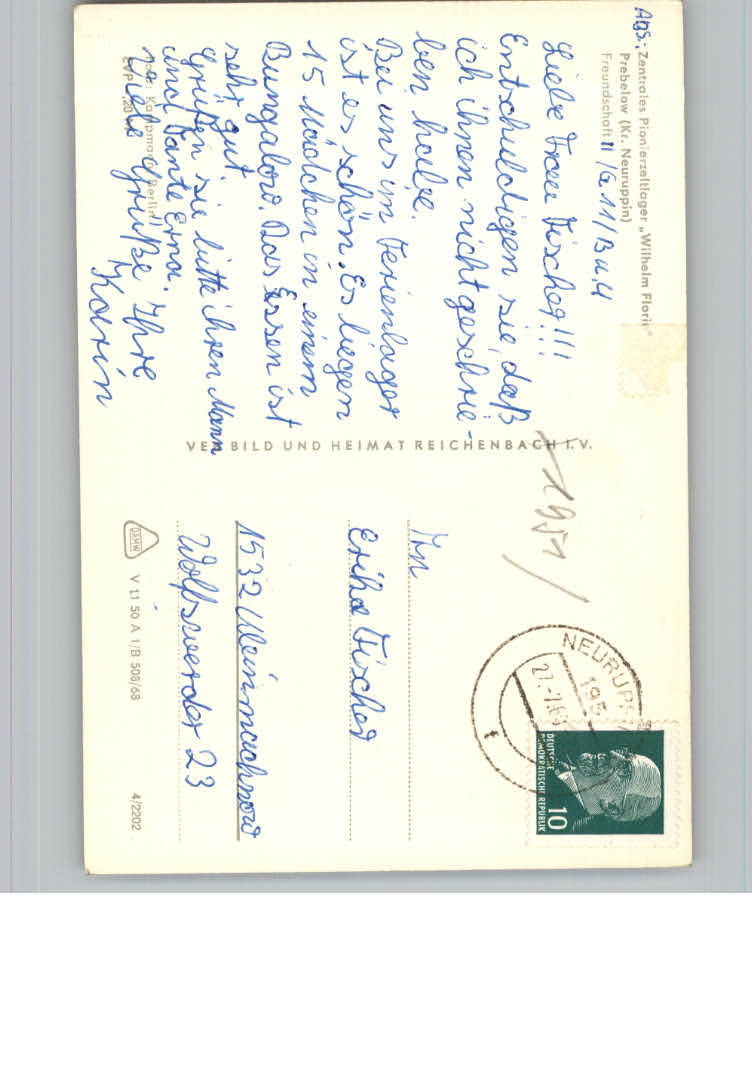 Abs.: Zentrales Pionierzeltlager „Wilhelm Florin"
Prebelow (Kr. Neuruppin)
Freundschaft II/G.11/B u.4
Liebe Frau Fischer!!!
Entschuldigen sie, daß
ich ihnen nicht geschrie-
ben habe.
Bei uns im Ferienlager
ist es schön. Es liegen
15 Mädchen in einem
Bungalow. Das Essen ist
sehr gut
Grüßen sie bitte ihren Mann
und Tante Erna.
Viele Grüße Ihre
Karin
Foto: Kampmann, Berlin
EVP
VEB BILD UND HEIMAT REICHENBACH I.V.
1951
NEURUPP
195
27.-7.6
t
DEUTSCHE
DEMOKRATISCHE REPUBLIK
10
An
Erika Fischer
1532 Kleinmachnow
Wolfswerder 23
DAMW
V 11 50 A 1/B 508/68
4/2202